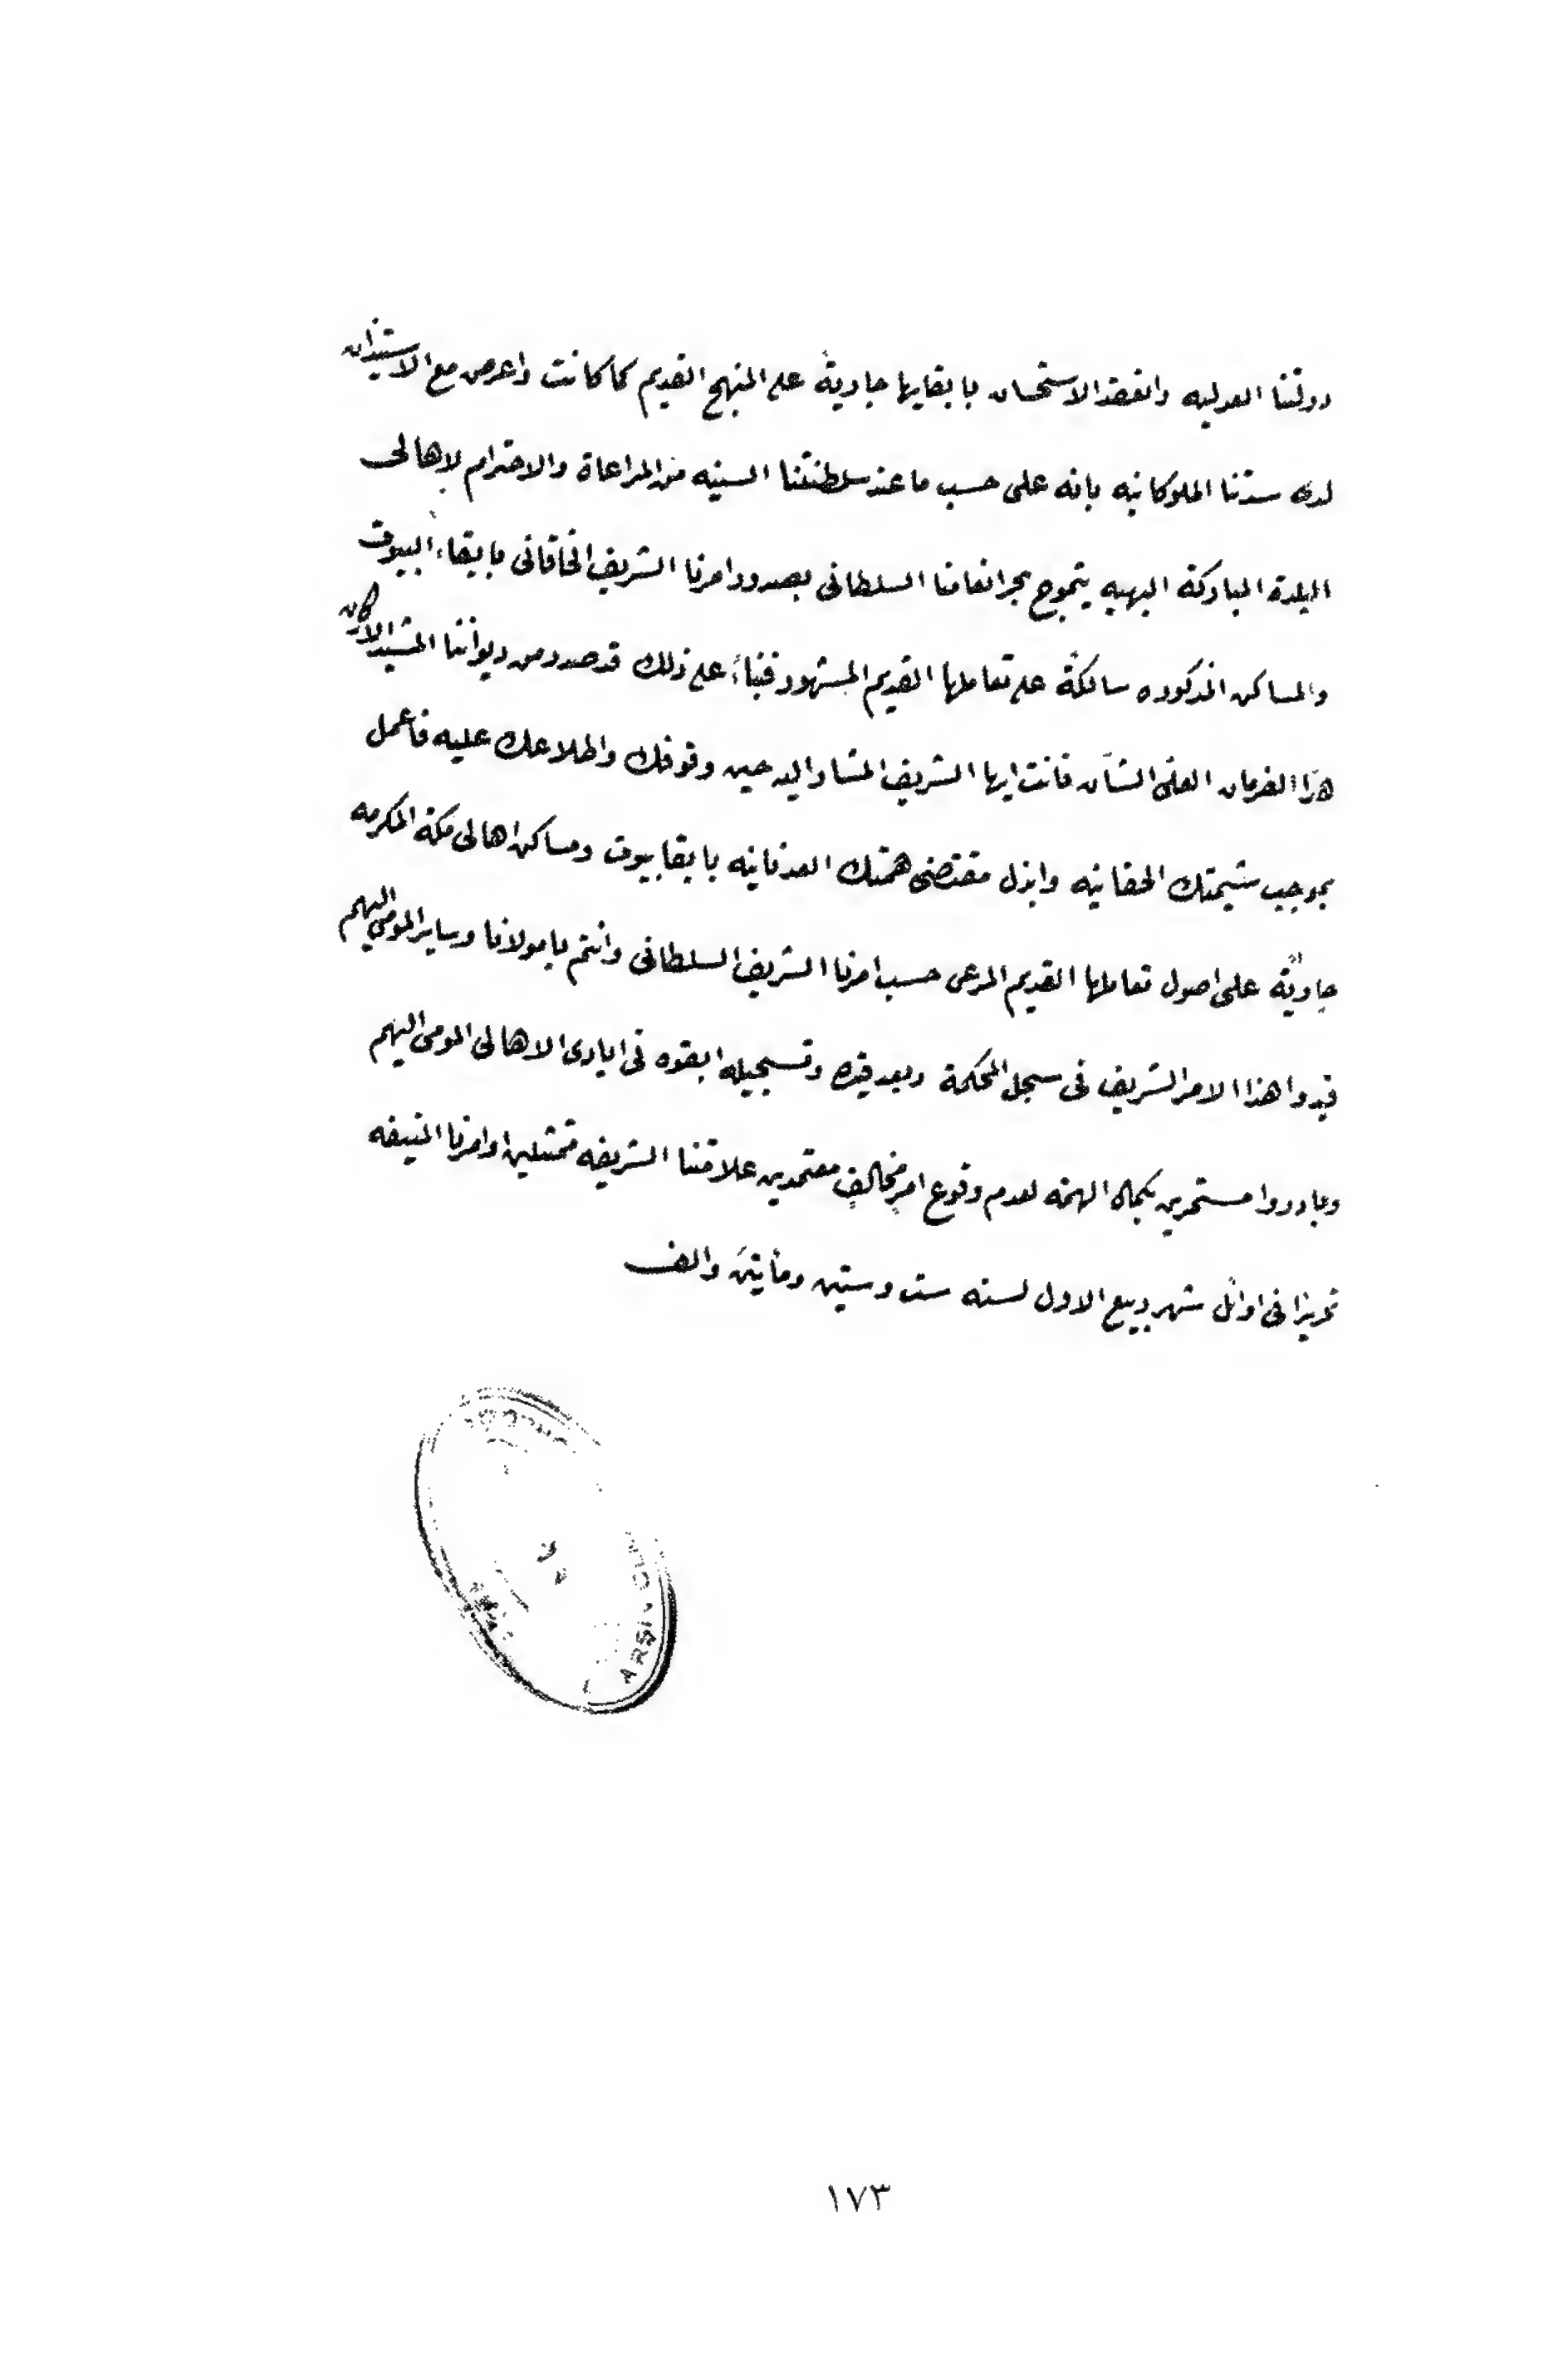 دولتنا العدليه وانعقد الاستحسان بابقايها جاريةً على المنهج القديم كما كانت واعرض مع الاستيذان
لدى سدتنا الملوكانيه بانه على حسب ما عند سلطنتنا السنيه من المراعاة والاحترام لاهالى
البلدة المباركة البهيه يتموج بحر انعامنا السلطانى بصدور امرنا الشريف الخاقانى بابقاء البيوت
والمساكن المذكوره سالكةً على تعاملها القديم المشهور فبناءً على ذلك قد صدر من ديواننا المشيد الاركان
هذا الفرمان العلى الشان فانت ايها الشريف المشار اليه حين وقوفك واطلاعك عليه فاعمل
بموجب شيمتك الحقانيه وابذل مقتضى همتك العدنانيه بابقا بيوت ومساكن اهالى مكة المكرمه
جاريةً على اصول تعاملها القديم المرعى حسب امرنا الشريف السلطانى وانتم يا مولانا وساير المومى اليهم
قيدوا هذا الامر الشريف فى سجل المحكمة وبعد قيده وتسجيله ابقوه فى ايادى الاهالى المومى اليهم
وبادروا مستمرين بكمال الهمه لعدم وقوع امرٍ مخالفٍ معتمدين علامتنا الشريفه ممتثلين اوامرنا المنيفه
تحريرا فى اوائل شهر ربيع الاول لسنه ست وستين ومأتين والف
ARŞİV
١٧٣